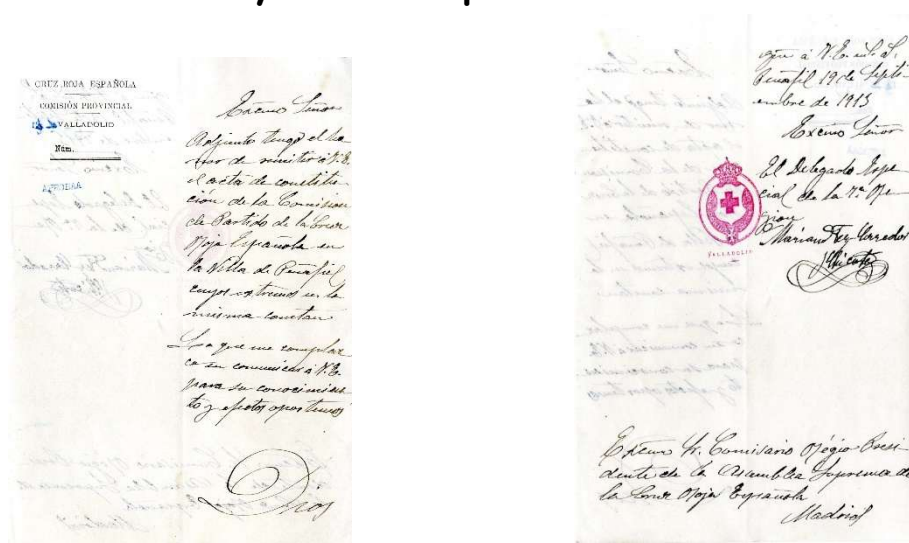 CRUZ ROJA ESPAÑOLA
COMISIÓN PROVINCIAL
VALLADOLID
Núm.
Excmo Señor
Adjunto tengo el ho-
nor de remitir á V.E.
el acta de constitu-
ción de la Comisión
de Partido de la Cruz
Roja Española en
la Villa de Peñafiel
cuyos extremos en la
misma constan
Lo que me complaz
co en comunicar á V.E.
para su conocimien
to y efectos oportunos
Dios
gue á V.E. m. a.
Peñafiel 19 de Septi-
embre de 1913
Excmo Señor
El Delegado Espe
cial de la 7ª Re-
gion
Mariano Fez Corredor
Vicente
VALLADOLID
Excmo Sr. Comisario Régio Presi
dente de la Asamblea Suprema de
la Cruz Roja Española
Madrid